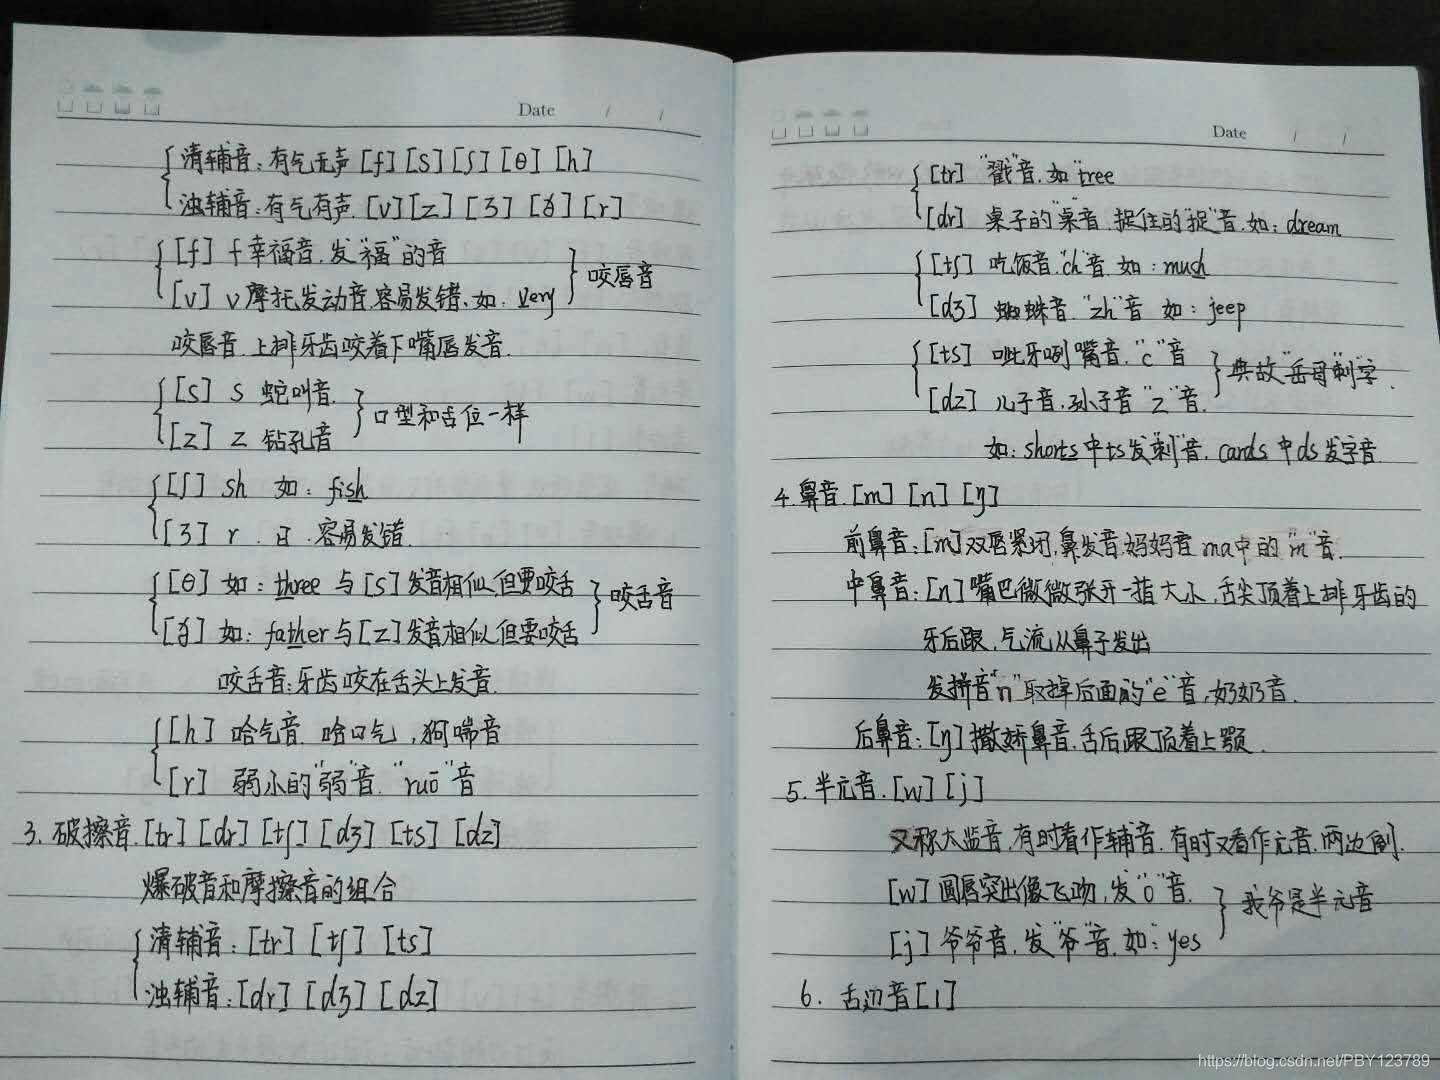 Date / /
清辅音:有气无声 [f] [s] [ʃ] [θ] [h]
浊辅音:有气有声. [v] [z] [ʒ] [ð] [r]
[f] f 幸福音.发"福"的音
[v] v 摩托发动音.容易发错.如:very
咬唇音
咬唇音.上排牙齿咬着下嘴唇发音.
[s] s 蛇叫音.
[z] z 钻孔音
口型和舌位一样
[ʃ] sh 如:fish
[ʒ] r.日.容易发错.
[θ] 如:three 与[s]发音相似.但要咬舌
[ð] 如:father与[z]发音相似.但要咬舌
咬舌音
咬舌音:牙齿咬在舌头上发音.
[h] 哈气音.哈口气,狗喘音
[r] 弱小的"弱"音."ruō"音
3.破擦音.[tr] [dr] [tʃ] [dʒ] [ts] [dz]
爆破音和摩擦音的组合
清辅音:[tr] [tʃ] [ts]
浊辅音:[dr] [dʒ] [dz]
Date / /
[tr] "戳"音.如tree
[dr] 桌子的"桌"音.捉住的"捉"音.如:dream
[tʃ] 吃饭音."ch"音.如:mush
[dʒ] 蜘蛛音."zh"音 如:jeep
[ts] 呲牙咧嘴音."c"音
[dz] 儿子音.孙子音"z"音.
典故"岳母"刺"字.
如:shorts中ts发"刺"音.cards中ds发字音.
4.鼻音.[m] [n] [ŋ]
前鼻音:[m]双唇紧闭,鼻发音.妈妈音 ma中的"m"音.
中鼻音:[n]嘴巴微微张开一指大小,舌尖顶着上排牙齿的
牙后跟,气流从鼻子发出
发拼音"n"取掉后面的"e"音,奶奶音.
后鼻音:[ŋ]撒娇鼻音.舌后跟顶着上颚.
5.半元音.[w] [j]
又称大监音,有时看作辅音.有时又看作元音.两边倒.
[w]圆唇突出像飞吻,发"o"音.
[j]爷爷音.发"爷"音.如:yes
我爷是半元音
6.舌边音[l]
https://blog.csdn.net/PBY123789